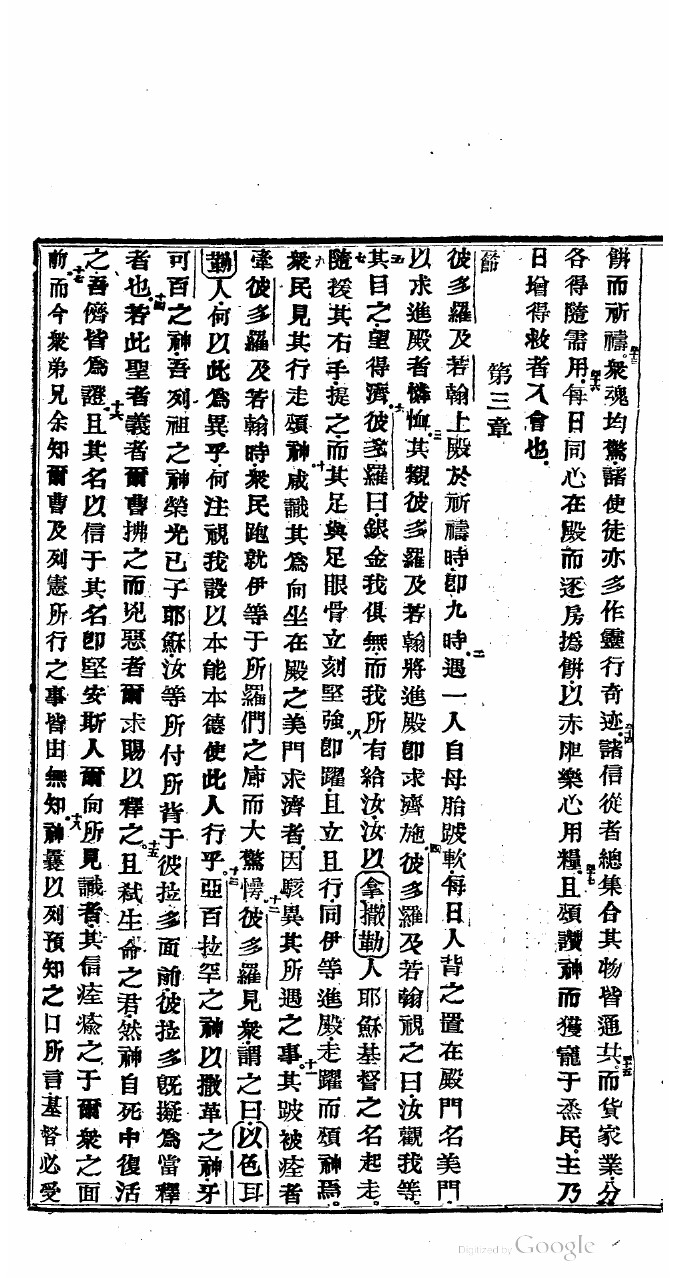 餅而祈禱衆魂均驚諸使徒亦多作靈行奇迹諸信從者總集合其物皆通共而貨家業分
各得隨需用每日同心在殿而逐房撝餅以赤心樂心用糧且頌讚神而獲寵于烝民主乃
日增得救者入會也
第三章
彼多羅及若翰上殿於祈禱時卽九時遇一人自母胎跛軟每日人背之置在殿門名美門
以求進殿者憐恤其覩彼多羅及若翰將進殿卽求濟施彼多羅及若翰視之曰汝觀我等
其目之望得濟彼多羅曰銀金我俱無而我所有給汝汝以拿撒勒人耶穌基督之名起走
隨援其右手提之而其足與足眼骨立刻堅強卽躍且立且行同伊等進殿走躍而頌神焉
衆民見其行走頌神咸識其爲向坐在殿之美門求濟者因駭異其所遇之事其跛被痊者
牽彼多羅及若翰時衆民跑就伊等于所羅們之廊而大驚愕彼多羅見衆謂之曰以色耳
勒人何以此爲異乎何注視我設以本能本德使此人行乎亞百拉罕之神以撒革之神牙
可百之神吾列祖之神榮光已子耶穌汝等所付所背于彼拉多面前彼拉多旣擬爲當釋
者也若此聖者義者爾曹拂之而兇惡者爾求賜以釋之且弒生命之君然神自死中復活
之吾儕皆爲證且其名以信于其名卽堅安斯人爾向所見識者其信痊瘉之于爾衆之面
前而今衆弟兄余知爾曹及列憲所行之事皆由無知神曩以列預知之口所言基督必受
Digitized by Google